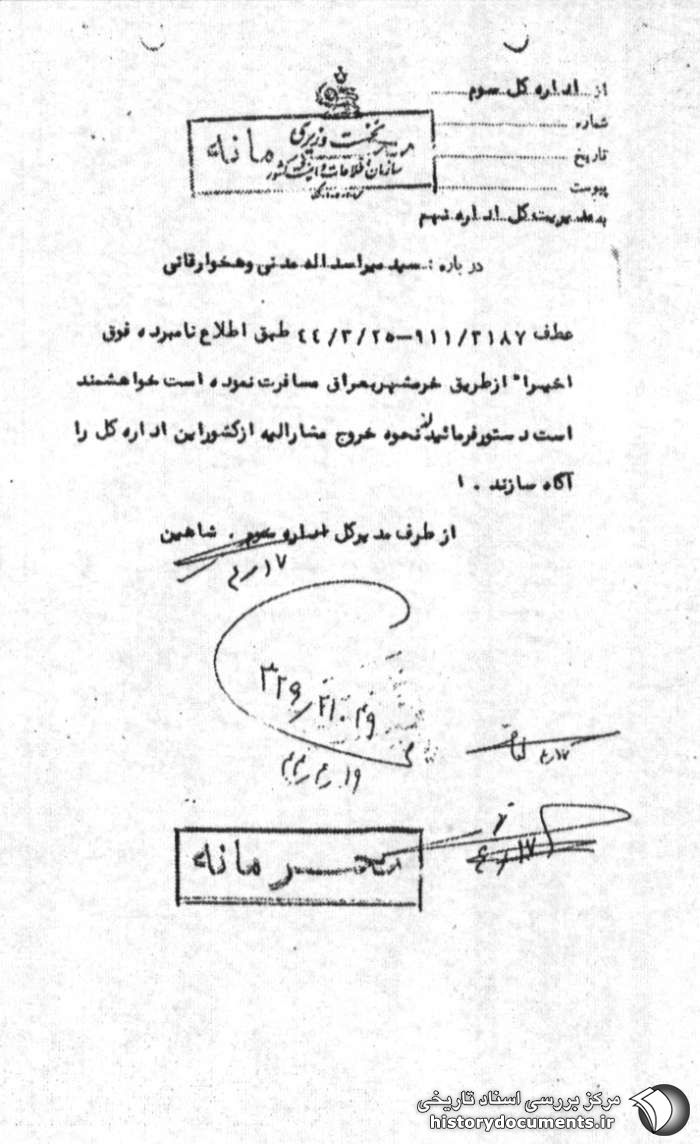 از ... اداره کل سوم ...
شماره ...
تاریخ ...
پیوست ...
نخست وزیری
سازمان اطلاعات و امنیت کشور
محرمانه
به مدیریت کل اداره نهم
درباره : سید میراسداله مدنی وهخوارقانی
عطف ۹۱۱/۳۱۸۷-۴۴/۳/۲۵ طبق اطلاع نامبرده فوق
اخیرا" ازطریق خرمشهربعراق مسافرت نموده است خواهشمند
است دستورفرمائید از نحوه خروج مشارالیه ازکشوراین اداره کل را
آگاه سازند . ا
از طرف مدیرکل اداره سوم . شاهین
۱۷/۴
۳۲۹/۲۱۰۴۹
۴۴/۴/۱۹
۱۷/۴
۱۷/۴
محرمانه
مرکز بررسی اسناد تاریخی
historydocuments.ir